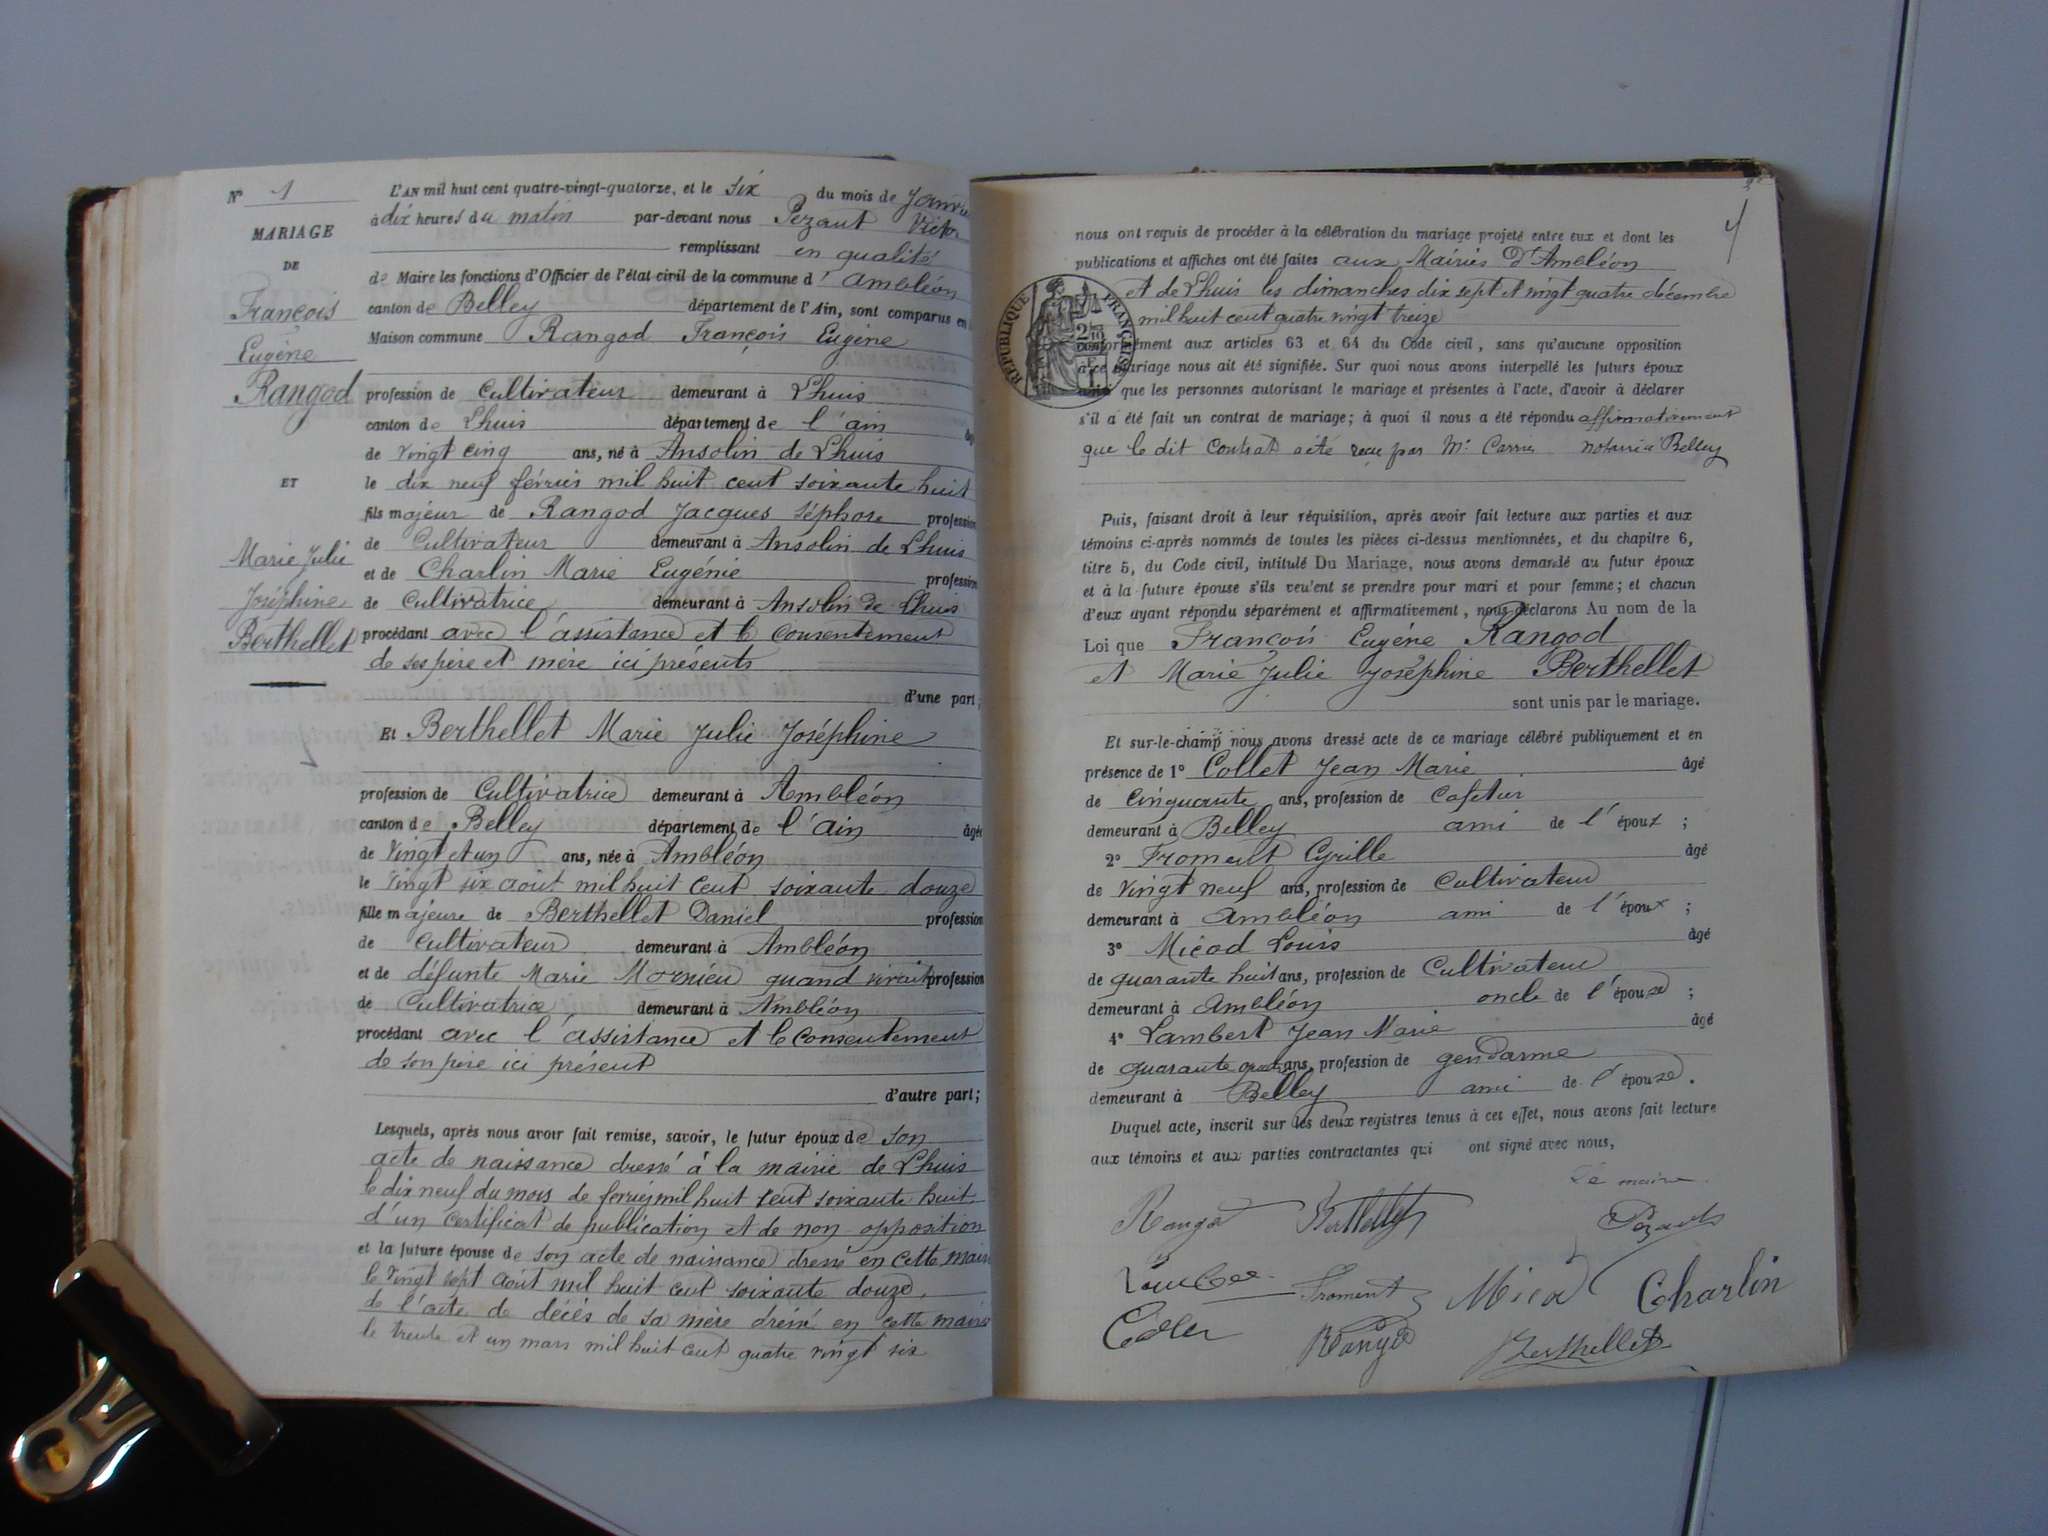 N° 1
MARIAGE
DE
François
Eugène
Rangod
ET
Marie Julie
Joséphine
Berthellet
L'AN mil huit cent quatre-vingt-quatorze, et le six du mois de Janvie
à dix heures du matin par-devant nous Pezant Victor
remplissant en qualité
de Maire les fonctions d'Officier de l'état civil de la commune d' Ambléon
canton de Belley département de l'Ain, sont comparus en
Maison commune Rangod François Eugène
profession de Cultivateur demeurant à Lhuis
canton de Lhuis département de l'ain
de vingt cinq ans, né à Ansolin de Lhuis
le dix neuf février mil huit cent soixante huit
fils majeur de Rangod Jacques Séphore profession
de Cultivateur demeurant à Ansolin de Lhuis
et de Charlin Marie Eugénie profession
de Cultivatrice demeurant à Ansolin de Lhuis
procédant avec l'assistance et le consentement
de ses père et mère ici présents
d'une part;
Et Berthellet Marie Julie Joséphine
profession de Cultivatrice demeurant à Ambléon
canton de Belley département de l'ain âgée
de vingt et un ans, née à Ambléon
le vingt six août mil huit cent soixante douze
fille majeure de Berthellet Daniel profession
de Cultivateur demeurant à Ambléon
et de défunte Marie Mornieu quand vivait profession
de Cultivatrice demeurant à Ambléon
procédant avec l'assistance et le consentement
de son père ici présent
d'autre part;
Lesquels, après nous avoir fait remise, savoir, le futur époux de son
acte de naissance dressé à la mairie de Lhuis
le dix neuf du mois de ferrié mil huit cent soixante huit
d'un certificat de publication et de non opposition
et la future épouse de son acte de naissance dressé en cette mairi
le vingt sept août mil huit cent soixante douze,
de l'acte de décès de sa mère dréssé en cette mairie
le trente et un mars mil huit cent quatre vingt six
4
nous ont requis de procéder à la célébration du mariage projeté entre eux et dont les
publications et affiches ont été faites aux Mairies d'Ambléon
et de Lhuis les dimanches dix sept et vingt quatre décembre
mil huit cent quatre vingt treize
RÉPUBLIQUE FRANÇAISE
conformément aux articles 63 et 64 du Code civil, sans qu'aucune opposition
à ce mariage nous ait été signifiée. Sur quoi nous avons interpellé les futurs époux
ainsi que les personnes autorisant le mariage et présentes à l'acte, d'avoir à déclarer
s'il a été fait un contrat de mariage; à quoi il nous a été répondu affirmativement
que le dit contrat a été reçu par Me Carrier notaire à Belley
Puis, faisant droit à leur réquisition, après avoir fait lecture aux parties et aux
témoins ci-après nommés de toutes les pièces ci-dessus mentionnées, et du chapitre 6,
titre 5, du Code civil, intitulé Du Mariage, nous avons demandé au futur époux
et à la future épouse s'ils veulent se prendre pour mari et pour femme; et chacun
d'eux ayant répondu séparément et affirmativement, nous déclarons Au nom de la
Loi que François Eugène Rangod
et Marie Julie Joséphine Berthellet
sont unis par le mariage.
Et sur-le-champ nous avons dressé acte de ce mariage célébré publiquement et en
présence de 1° Collet Jean Marie âgé
de Cinquante ans, profession de Cafetier
demeurant à Belley ami de l'époux ;
2° Froment Cyrille âgé
de vingt neuf ans, profession de Cultivateur
demeurant à Ambléon ami de l'époux ;
3° Micod Louis âgé
de quarante huit ans, profession de Cultivateur
demeurant à Ambléon oncle de l'épouse ;
4° Lambert Jean Marie âgé
de quarante ans, profession de gendarme
demeurant à Belley ami de l'épouse.
Duquel acte, inscrit sur les deux registres tenus à cet effet, nous avons fait lecture
aux témoins et aux parties contractantes qui ont signé avec nous,
Le maire
Rangod Berthellet Pezant
Froment Micod Charlin
Rangod Berthellet